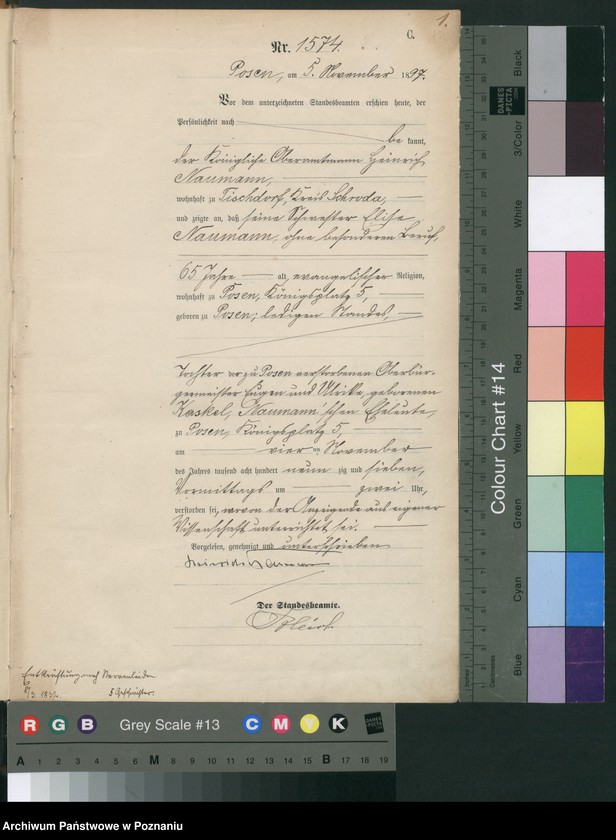 1.
C.
Nr. 1574.
Posen, am 5. November 1897.
Vor dem unterzeichneten Standesbeamten erschien heute, der
Persönlichkeit nach
bekannt,
der Königliche Oberamtmann Heinrich
Naumann,
wohnhaft zu Tischdorf, Kreis Schroda,
und zeigte an, daß seine Schwester Elise
Naumann, ohne besonderen Beruf,
65 Jahre alt, evangelischer Religion,
wohnhaft zu Posen, Königsplatz 5,
geboren zu Posen, ledigen Standes,
Tochter der zu Posen verstorbenen Oberbür-
germeister Eugen und Ulrike, geborenen
Kaskel, Naumann'schen Eheleute,
zu Posen, Königsplatz 5,
am vierten November
des Jahres tausend acht hundert neunzig und sieben,
Vormittags um zwei Uhr,
verstorben sei, wovon der Anzeigende aus eigener
Wissenschaft unterrichtet sei.
Vorgelesen, genehmigt und unterschrieben
Heinrich Naumann
Der Standesbeamte.
5 Geschwister.
Colour Chart #14
Blue
Cyan
Green
Yellow
Red
Magenta
White
3/Color
Black
DANES
PICTA
R G B Grey Scale #13 C M Y K
A 1 2 3 4 5 6 M 8 9 10 11 12 13 14 15 B 17 18 19
Archiwum Państwowe w Poznaniu